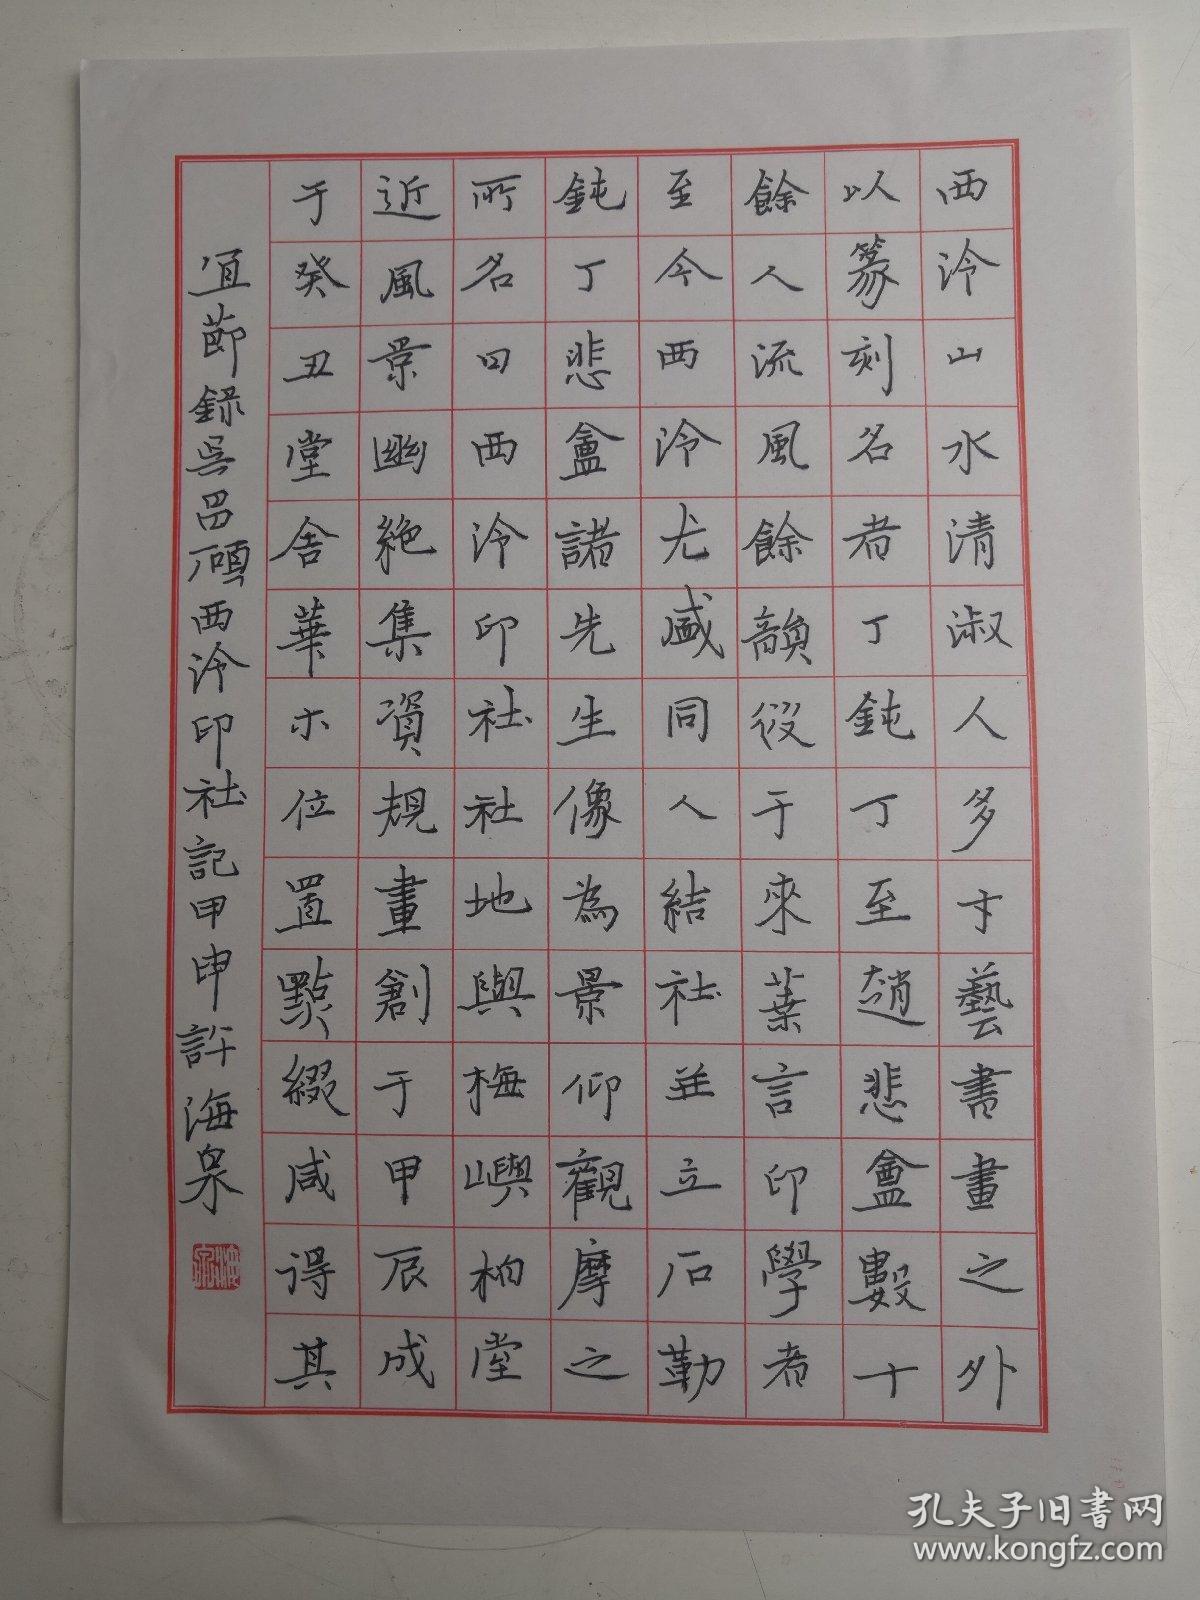 西泠山水清淑人多才藝書畫之外
以篆刻名者丁鈍丁至趙悲盦數十
餘人流風餘韻于來葉言印學者
至今西泠尤盛同人結社並立石勒
鈍丁悲盦諸先生像為景仰觀摩之
所名曰西泠印社社地與梅嶼柏堂
近風景幽絕集資規畫創于甲辰成
于癸丑堂舍華木位置點綴咸得其
宜節錄吳昌碩西泠印社記甲申許海泉
孔夫子旧书网
www.kongfz.com